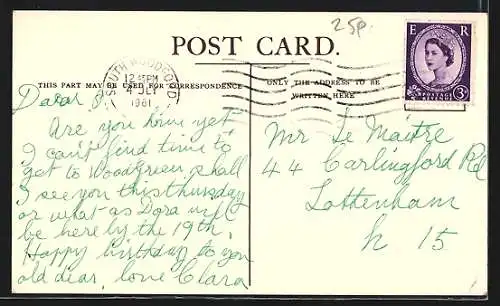 25p.
POST CARD.
THIS PART MAY BE USED FOR CORRESPONDENCE
ONLY THE ADDRESS TO BE
WRITTEN HERE
SOUTH WOODFORD
12 15 PM
4 OCT
1961
E R
POSTAGE
REVENUE
3D
Dear
Are you home yet
I can't find time to
get to Woodgreen, shall
I see you this thursday
or what as Dora will
be here by the 19th,
Happy birthday to you
old dear, love Clara
Mr Le Maitre
44 Carlingford Rd
Tottenham
N 15